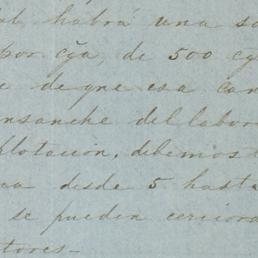 habrá una
por cja, de 500
de que esa can
ensanche del labor
plotación, debemos
desde 5 hasta
se pueden cerciora
tores-